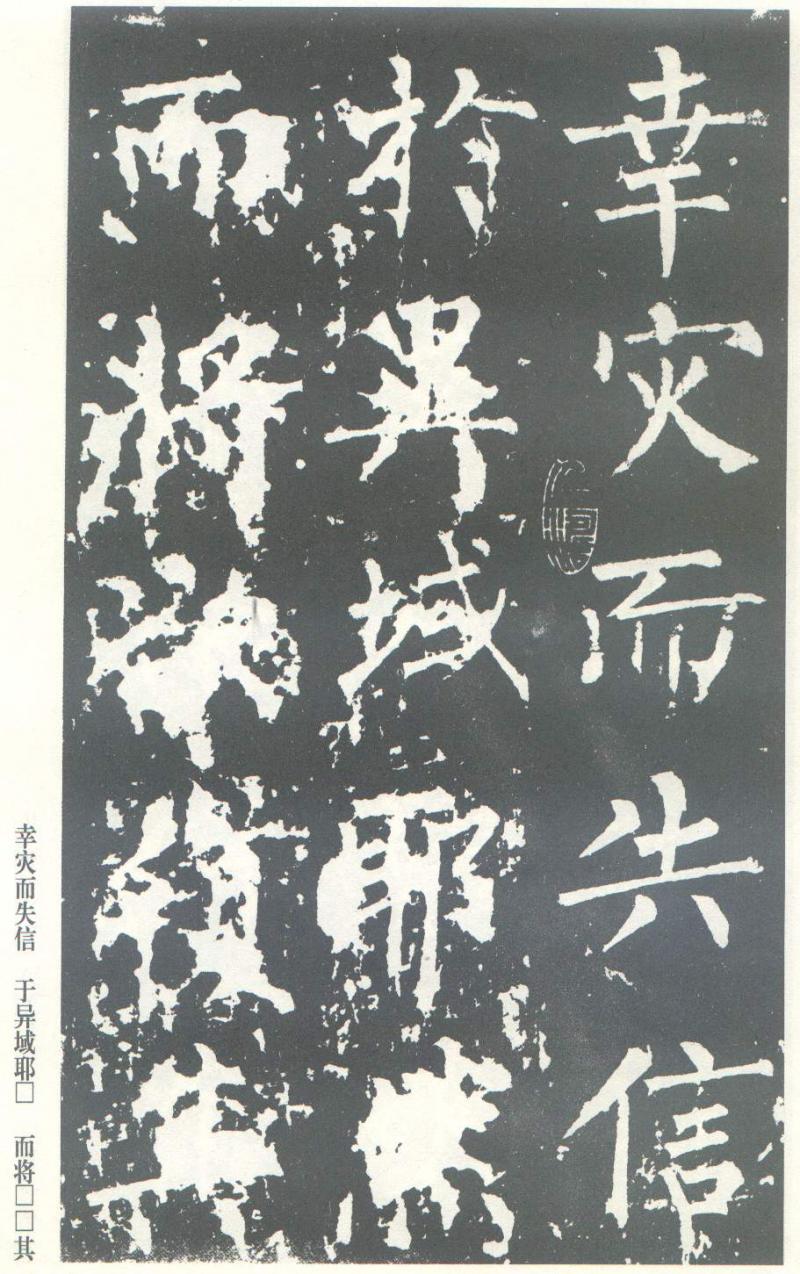 幸灾而失信
於異域耶
而將其
幸灾而失信　于异域耶□　而将□□其